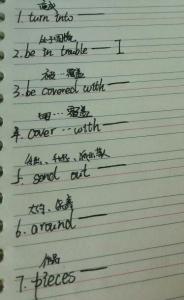 变成
1. turn into ——
处于困境
2. be in trouble ——
被…覆盖
3. be covered with ——
用…覆盖
4. cover … with ——
5. send out ——
大约、
6. around ——
作品
7. pieces ——